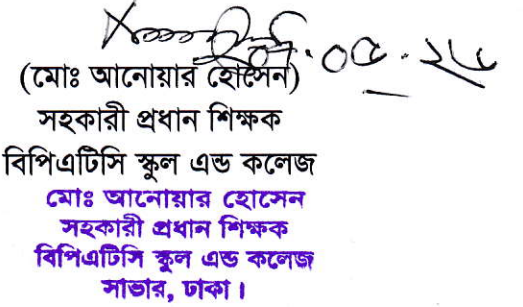 (মোঃ আনোয়ার হোসেন)
সহকারী প্রধান শিক্ষক
বিপিএটিসি স্কুল এন্ড কলেজ
মোঃ আনোয়ার হোসেন
সহকারী প্রধান শিক্ষক
বিপিএটিসি স্কুল এন্ড কলেজ
সাভার, ঢাকা।